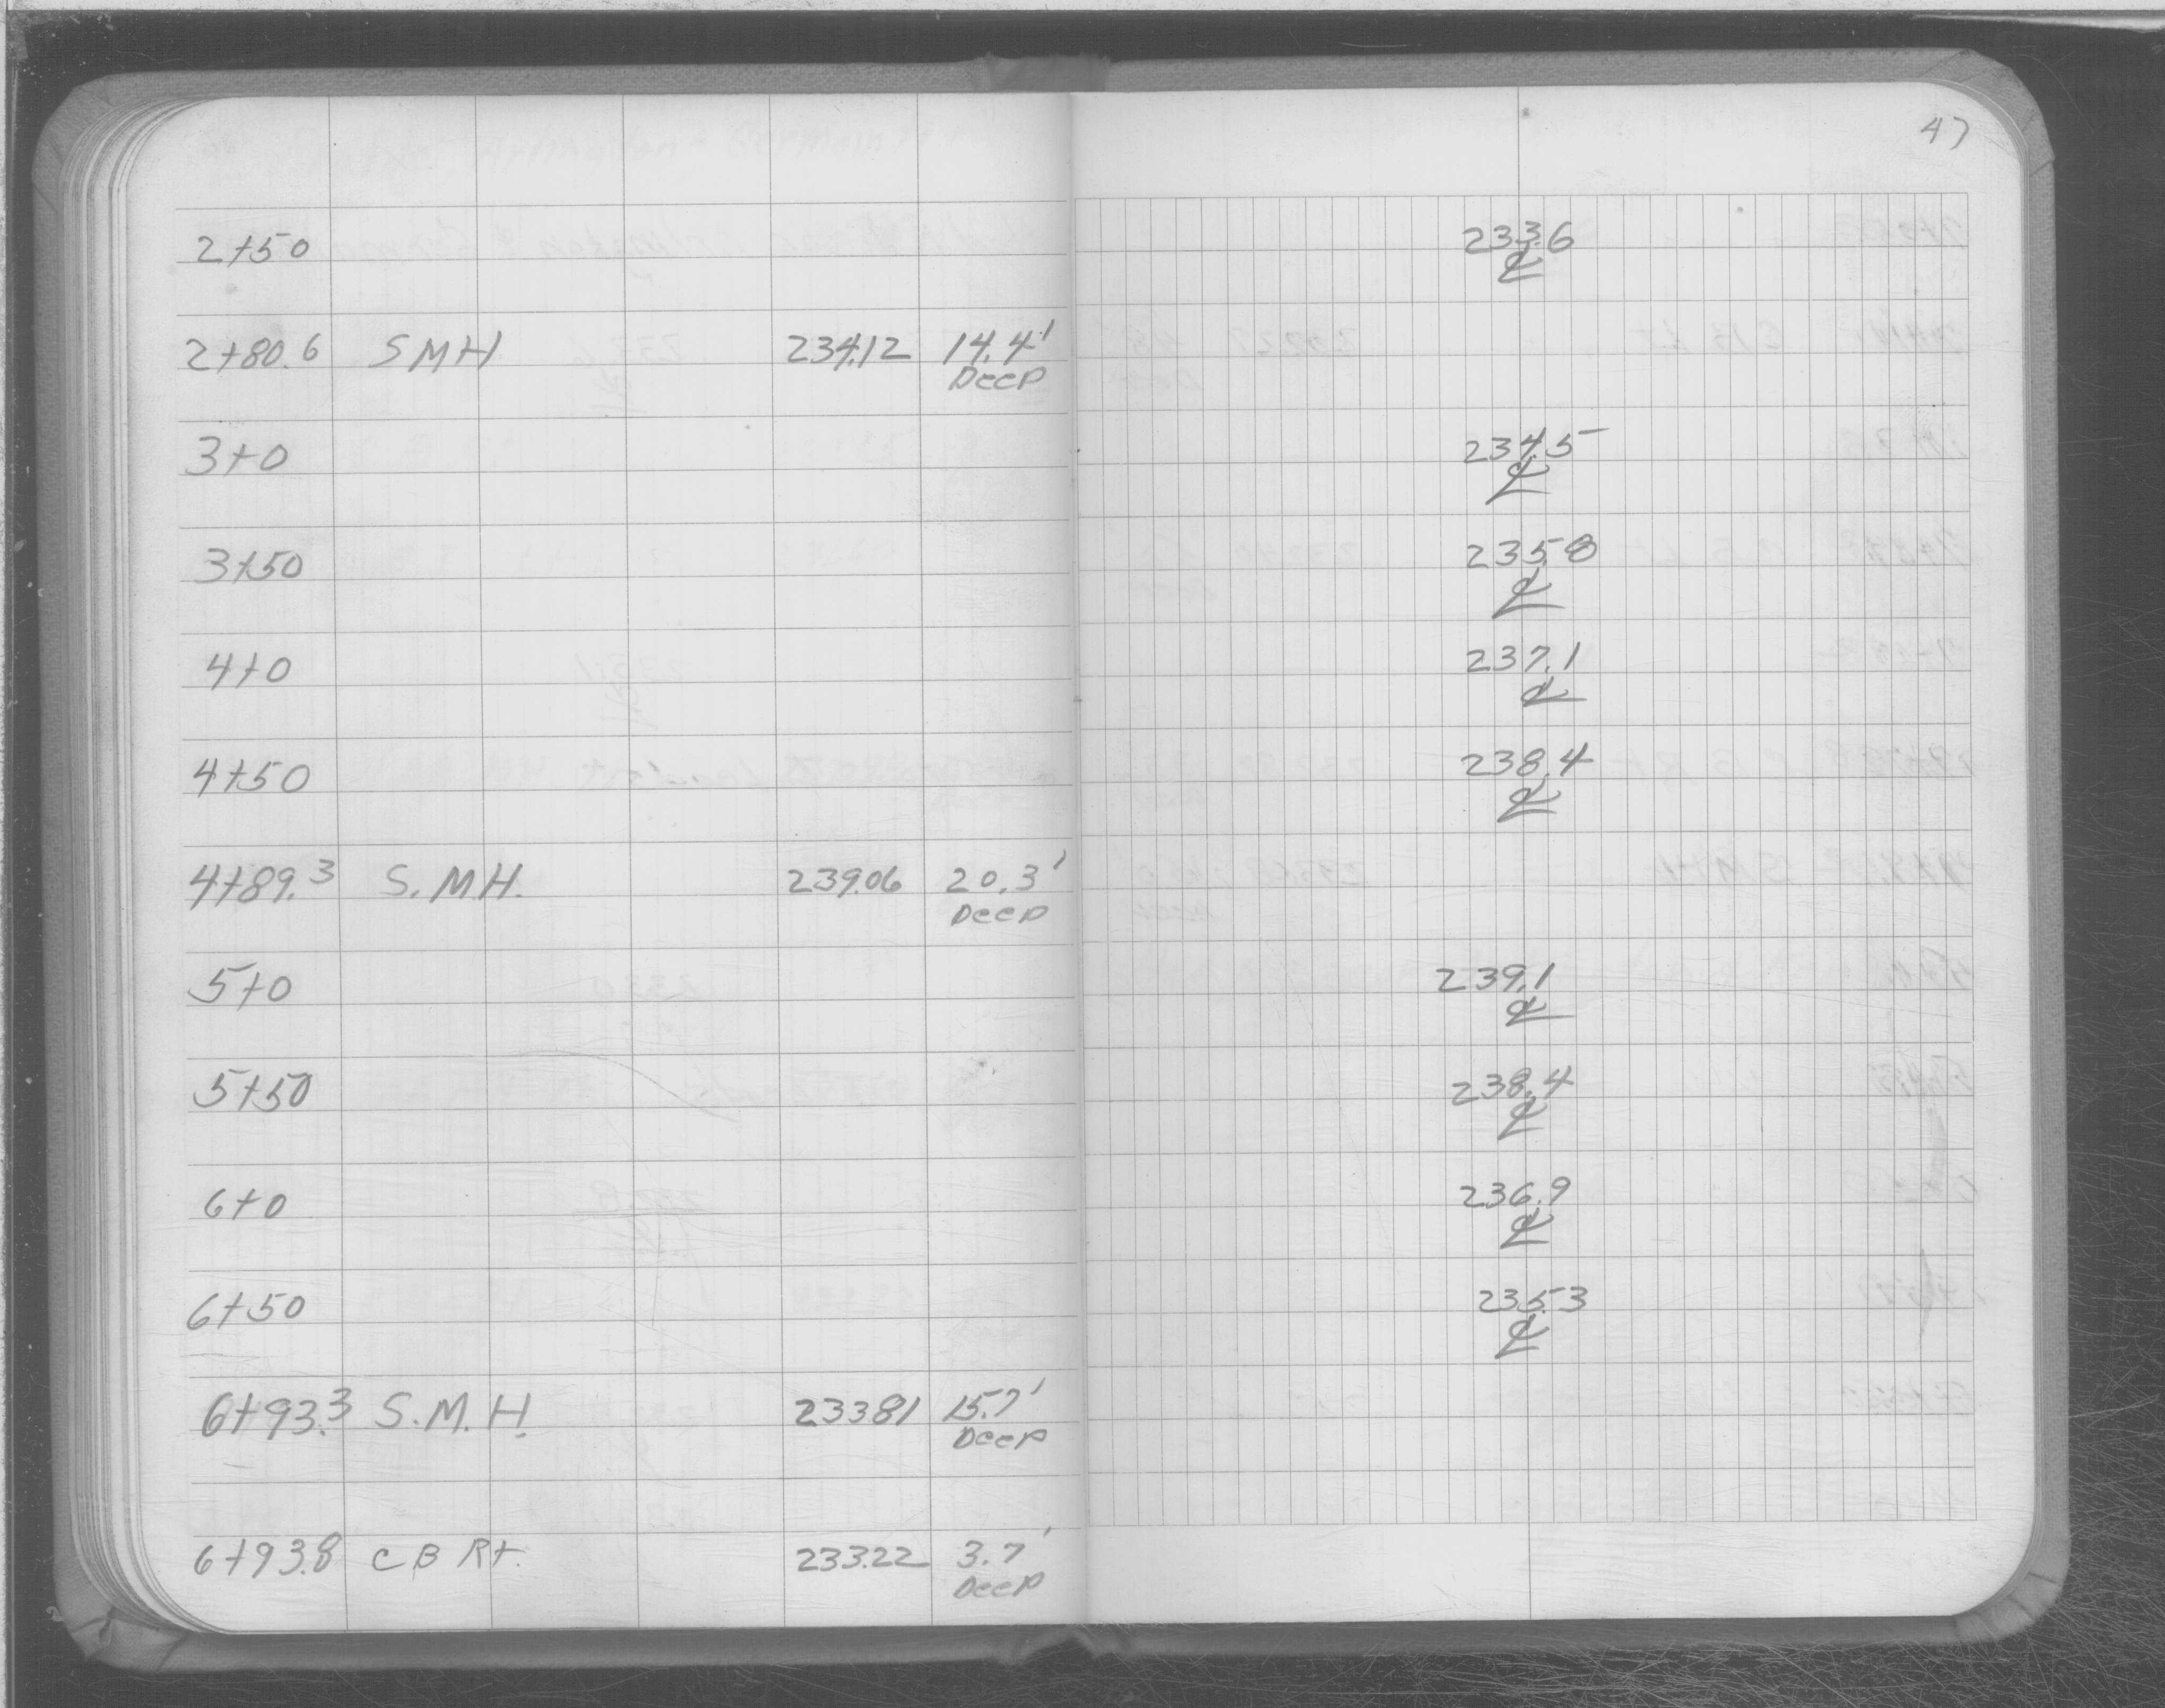 47
2+50 233.6
℄
2+80.6 SMH 234.12 14.4'
Deep
3+0 234.5
℄
3+50 235.8
℄
4+0 237.1
℄
4+50 238.4
℄
4+89.3 S.M.H. 239.06 20.3'
Deep
5+0 239.1
℄
5+50 238.4
℄
6+0 236.9
℄
6+50 235.3
℄
6+93.3 S.M.H. 233.81 15.7'
Deep
6+93.8 CB Rt. 233.22 3.7'
Deep